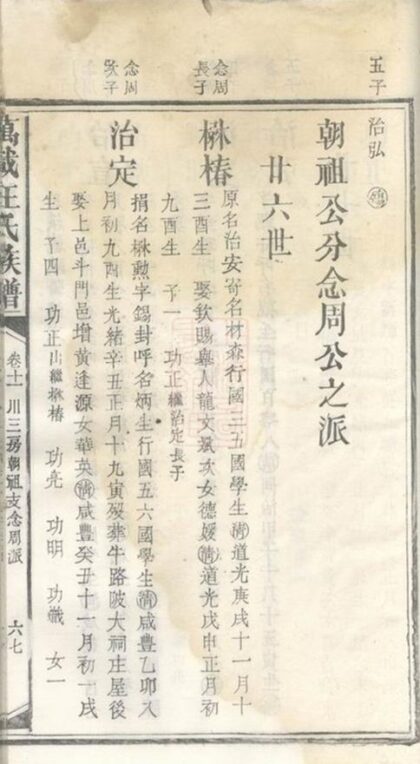 五子
治弘 殤
朝祖公分念周公之派
廿六世
念周長子
楙椿
原名治安寄名材森行國三五國學生清道光庚戌十一月十
三酉生 娶欽賜舉人龍文斌次女德媛清道光戊申正月初
九酉生 子一 功正繼治定長子
念周次子
治定
捐名楙勲字錫封呼名炳生行國五六國學生清咸豐乙卯八
月初九酉生光緒辛丑正月十九寅歿葬牛路陂大祠庄屋後
娶上邑斗門邑增黃逢源女華英清咸豐癸丑十一月初一戌
生 子四 功正出繼楙椿 功亮 功明 功 女一
萬載王氏族譜
卷十一 川三房朝祖支念周派
六七